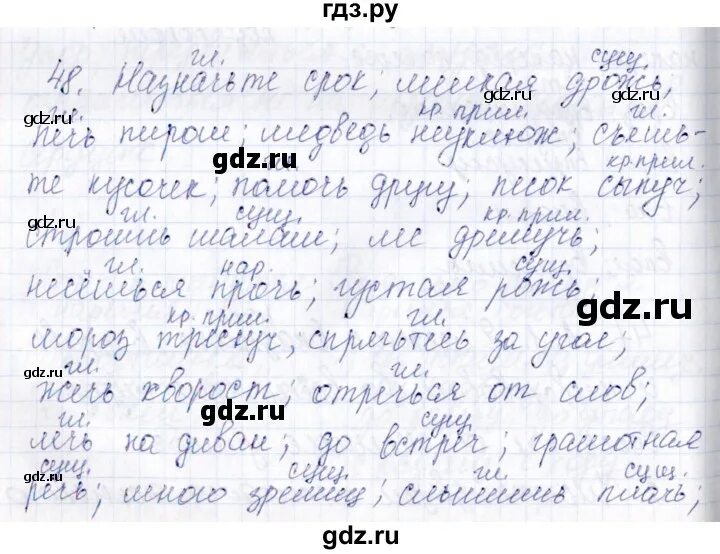 гдз.ру
гл. сущ.
48. Назначьте срок; мелкая дрожь;
gdz.ru
гл. кр.прил. гл.
печь пироги; медведь неуклюж; съешь-
gdz.ru
гл. кр.прил.
те кусочек; помочь другу; песок сыпуч;
gdz.ru
гл. сущ. кр.прил.
строишь шалаш; лес дремуч;
гл. нар. сущ.
несёшься прочь; густая рожь;
gdz.ru
кр.прил. гл.
мороз трескуч; спрячьтесь за угол;
gdz.ru
гл. гл.
жечь хворост; отречься от слов;
gdz.ru
гл. сущ.
лечь на диван; до встреч; грамотная
gdz.ru
gdz.ru
сущ. сущ. гл. сущ.
речь; много зрелищ; слышишь плач;
gdz.ru
gdz.ru
gdz.ru